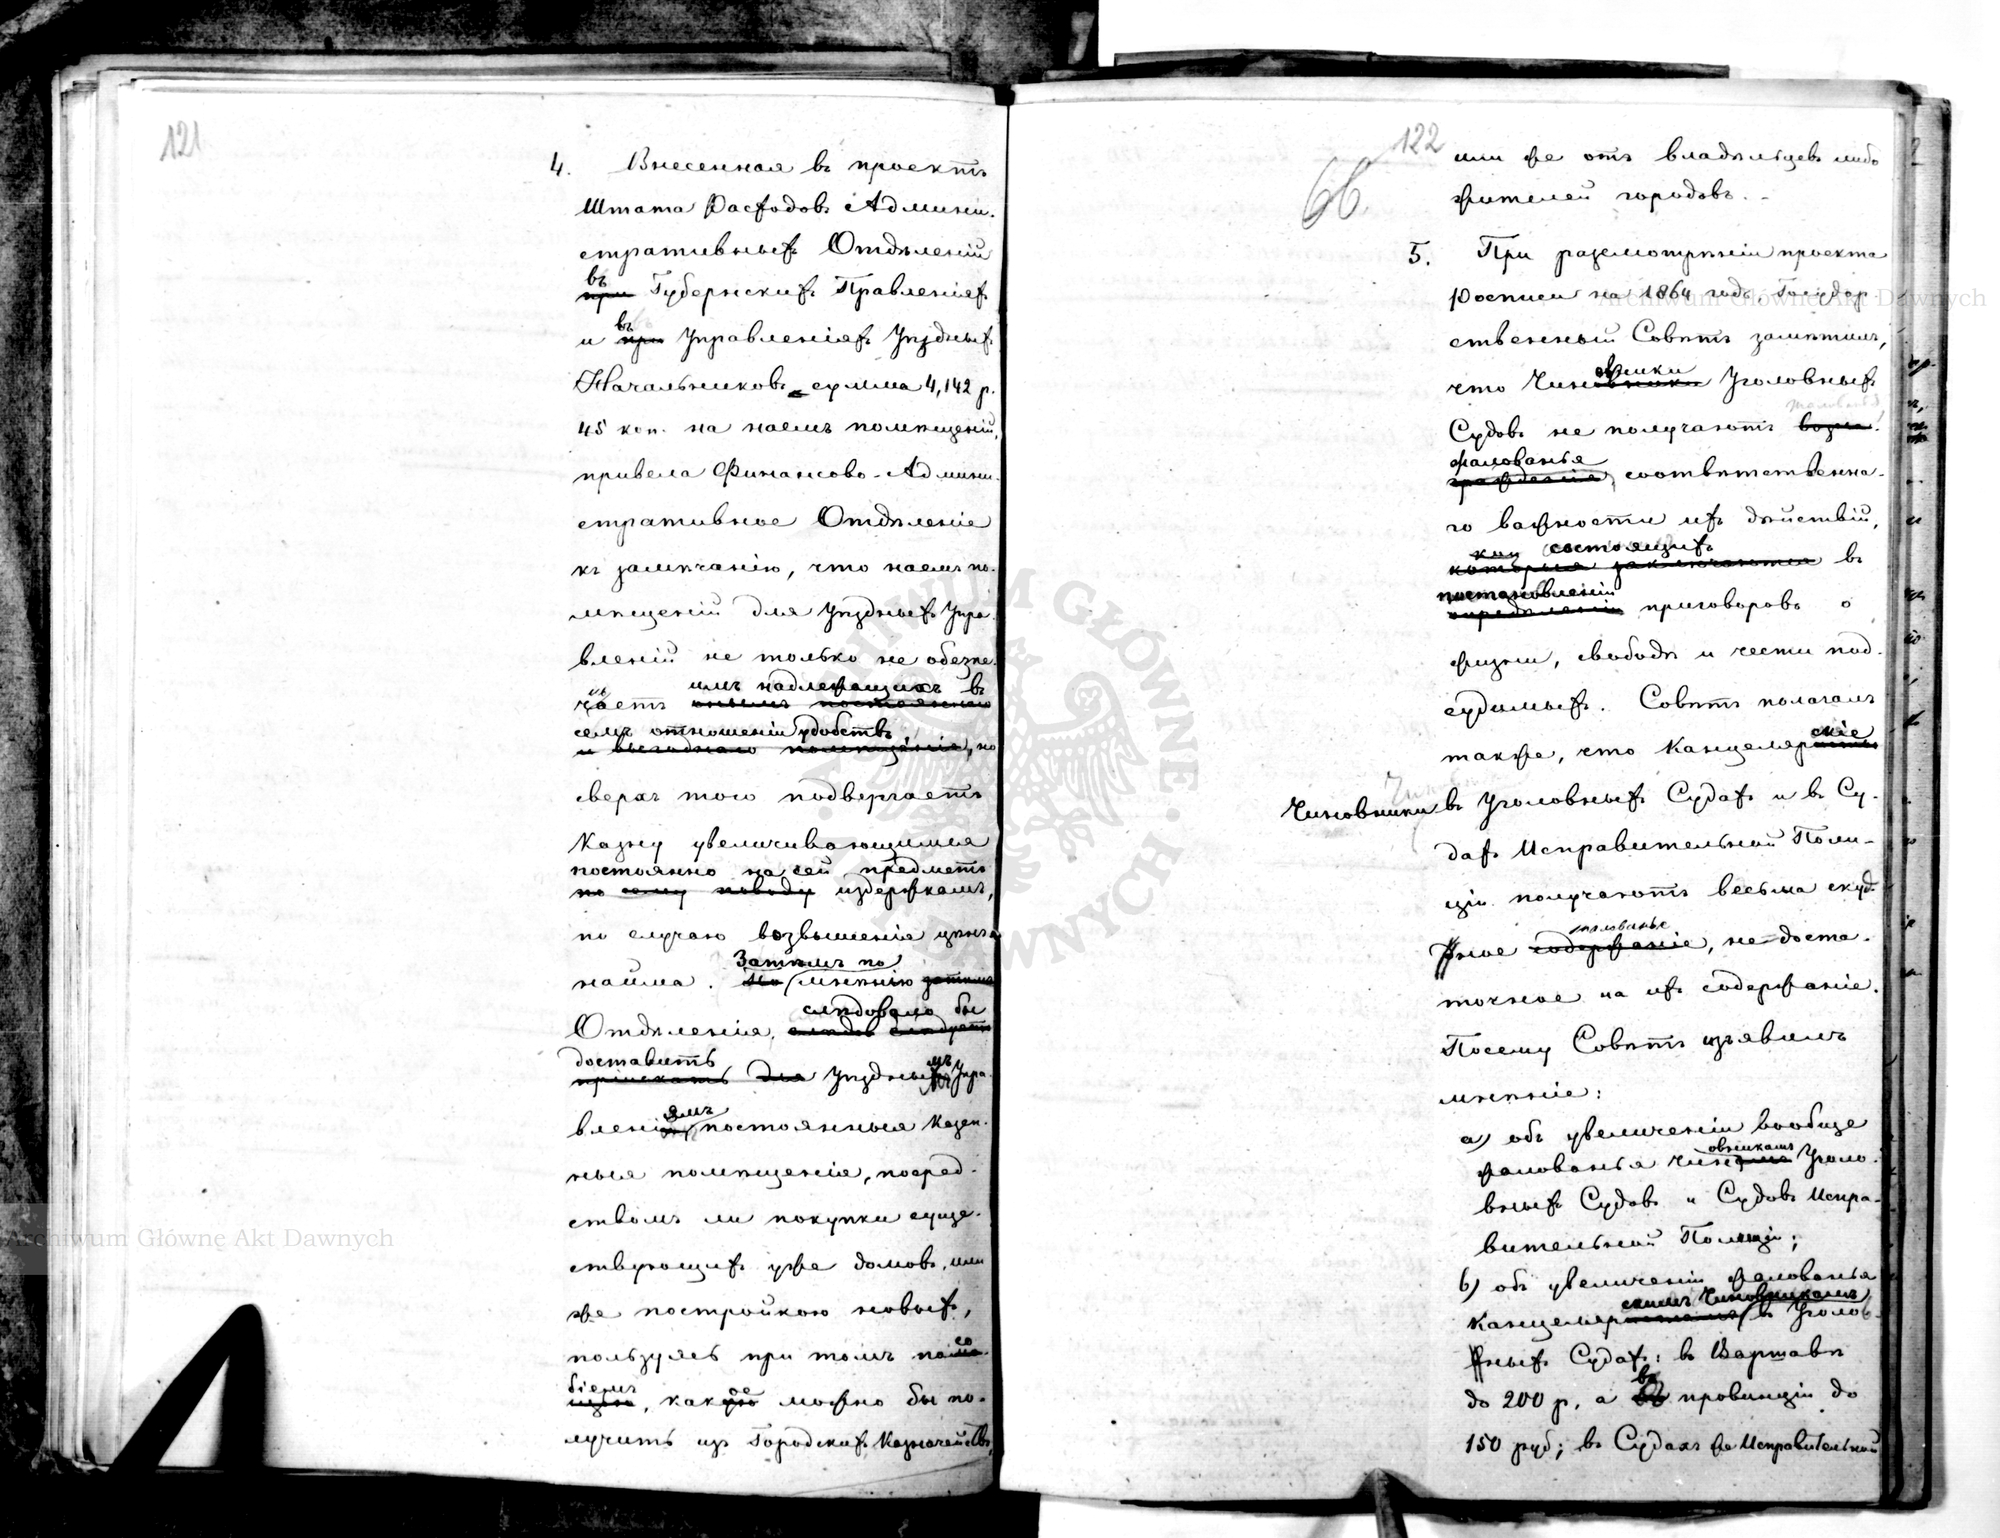 121
4. Внесенная въ проектъ
Штата Расходовъ Админи-
стративныхъ Отдѣленій
въ
при Губернскихъ Правленіяхъ
въ
и при Управленіяхъ Уѣздныхъ
Начальниковъ сумма 4,142 р.
45 коп. на наемъ помѣщеній,
привела Финансово-Админи-
стративное Отдѣленіе
къ замѣчанію, что наемъ по-
мѣщеній для Уѣздныхъ Упра-
вленій не только не обезпе-
имъ надлежащихъ въ
чаетъ онымъ постояннаго
семъ отношеніи удобствъ
и выгоднаго помѣщенія, но
сверхъ того подвергаетъ
Казну увеличивающимся
постоянно на сей предметъ
по сему поводу издержкамъ,
по случаю возвышенія цѣнъ
найма.
Затѣмъ по
По мнѣнію
слѣдовало бы
Отдѣленія,
доставить
пріискать для Уѣзднымъ Упра-
ямъ
вленія постоянныя казен-
ныя помѣщенія, посред-
ствомъ ли покупки суще-
ствующихъ уже домовъ, или
же постройкою новыхъ,
пользуясь при томъ посо-
біемъ
щью, какое можно бы по-
лучить изъ Городскихъ Казначействъ,
122
66
или же отъ владѣльцевъ либо
жителей городовъ.
5. При разсмотрѣніи проекта
Росписи на 1864 годъ, Государ-
ственный Совѣтъ замѣтилъ,
овники
что Чиновники Уголовныхъ
Судовъ не получаютъ возна-
жалованья
гражденія, соотвѣтственна-
го важности ихъ дѣйствій,
кои состоящихъ
которыя заключаются въ
постановленіи
опредѣленіи приговоровъ о
жизни, свободѣ и чести под-
судимыхъ. Совѣтъ полагалъ
скіе
также, что Канцеляр
Чиновники въ Уголовныхъ Судахъ и въ Су-
дахъ Исправительной Поли-
ціи получаютъ весьма скуд-
жалованье
ное содержаніе, не доста-
точное на ихъ содержаніе.
Посему Совѣтъ изъявилъ
мнѣніе:
а) объ увеличеніи вообще
овникамъ
жалованья Чин Уголо-
вныхъ Судовъ и Судовъ Испра-
вительной Полиціи;
b) объ увеличеніи жалованья
скимъ Чиновникамъ
Канцеляр въ Уголов-
ныхъ Судахъ: въ Варшавѣ
въ
до 200 р, а провинціи до
150 руб; въ Судахъ же Исправительной
Archiwum Główne Akt Dawnych
Archiwum Główne Akt Dawnych
ARCHIWUM GŁÓWNE AKT DAWNYCH